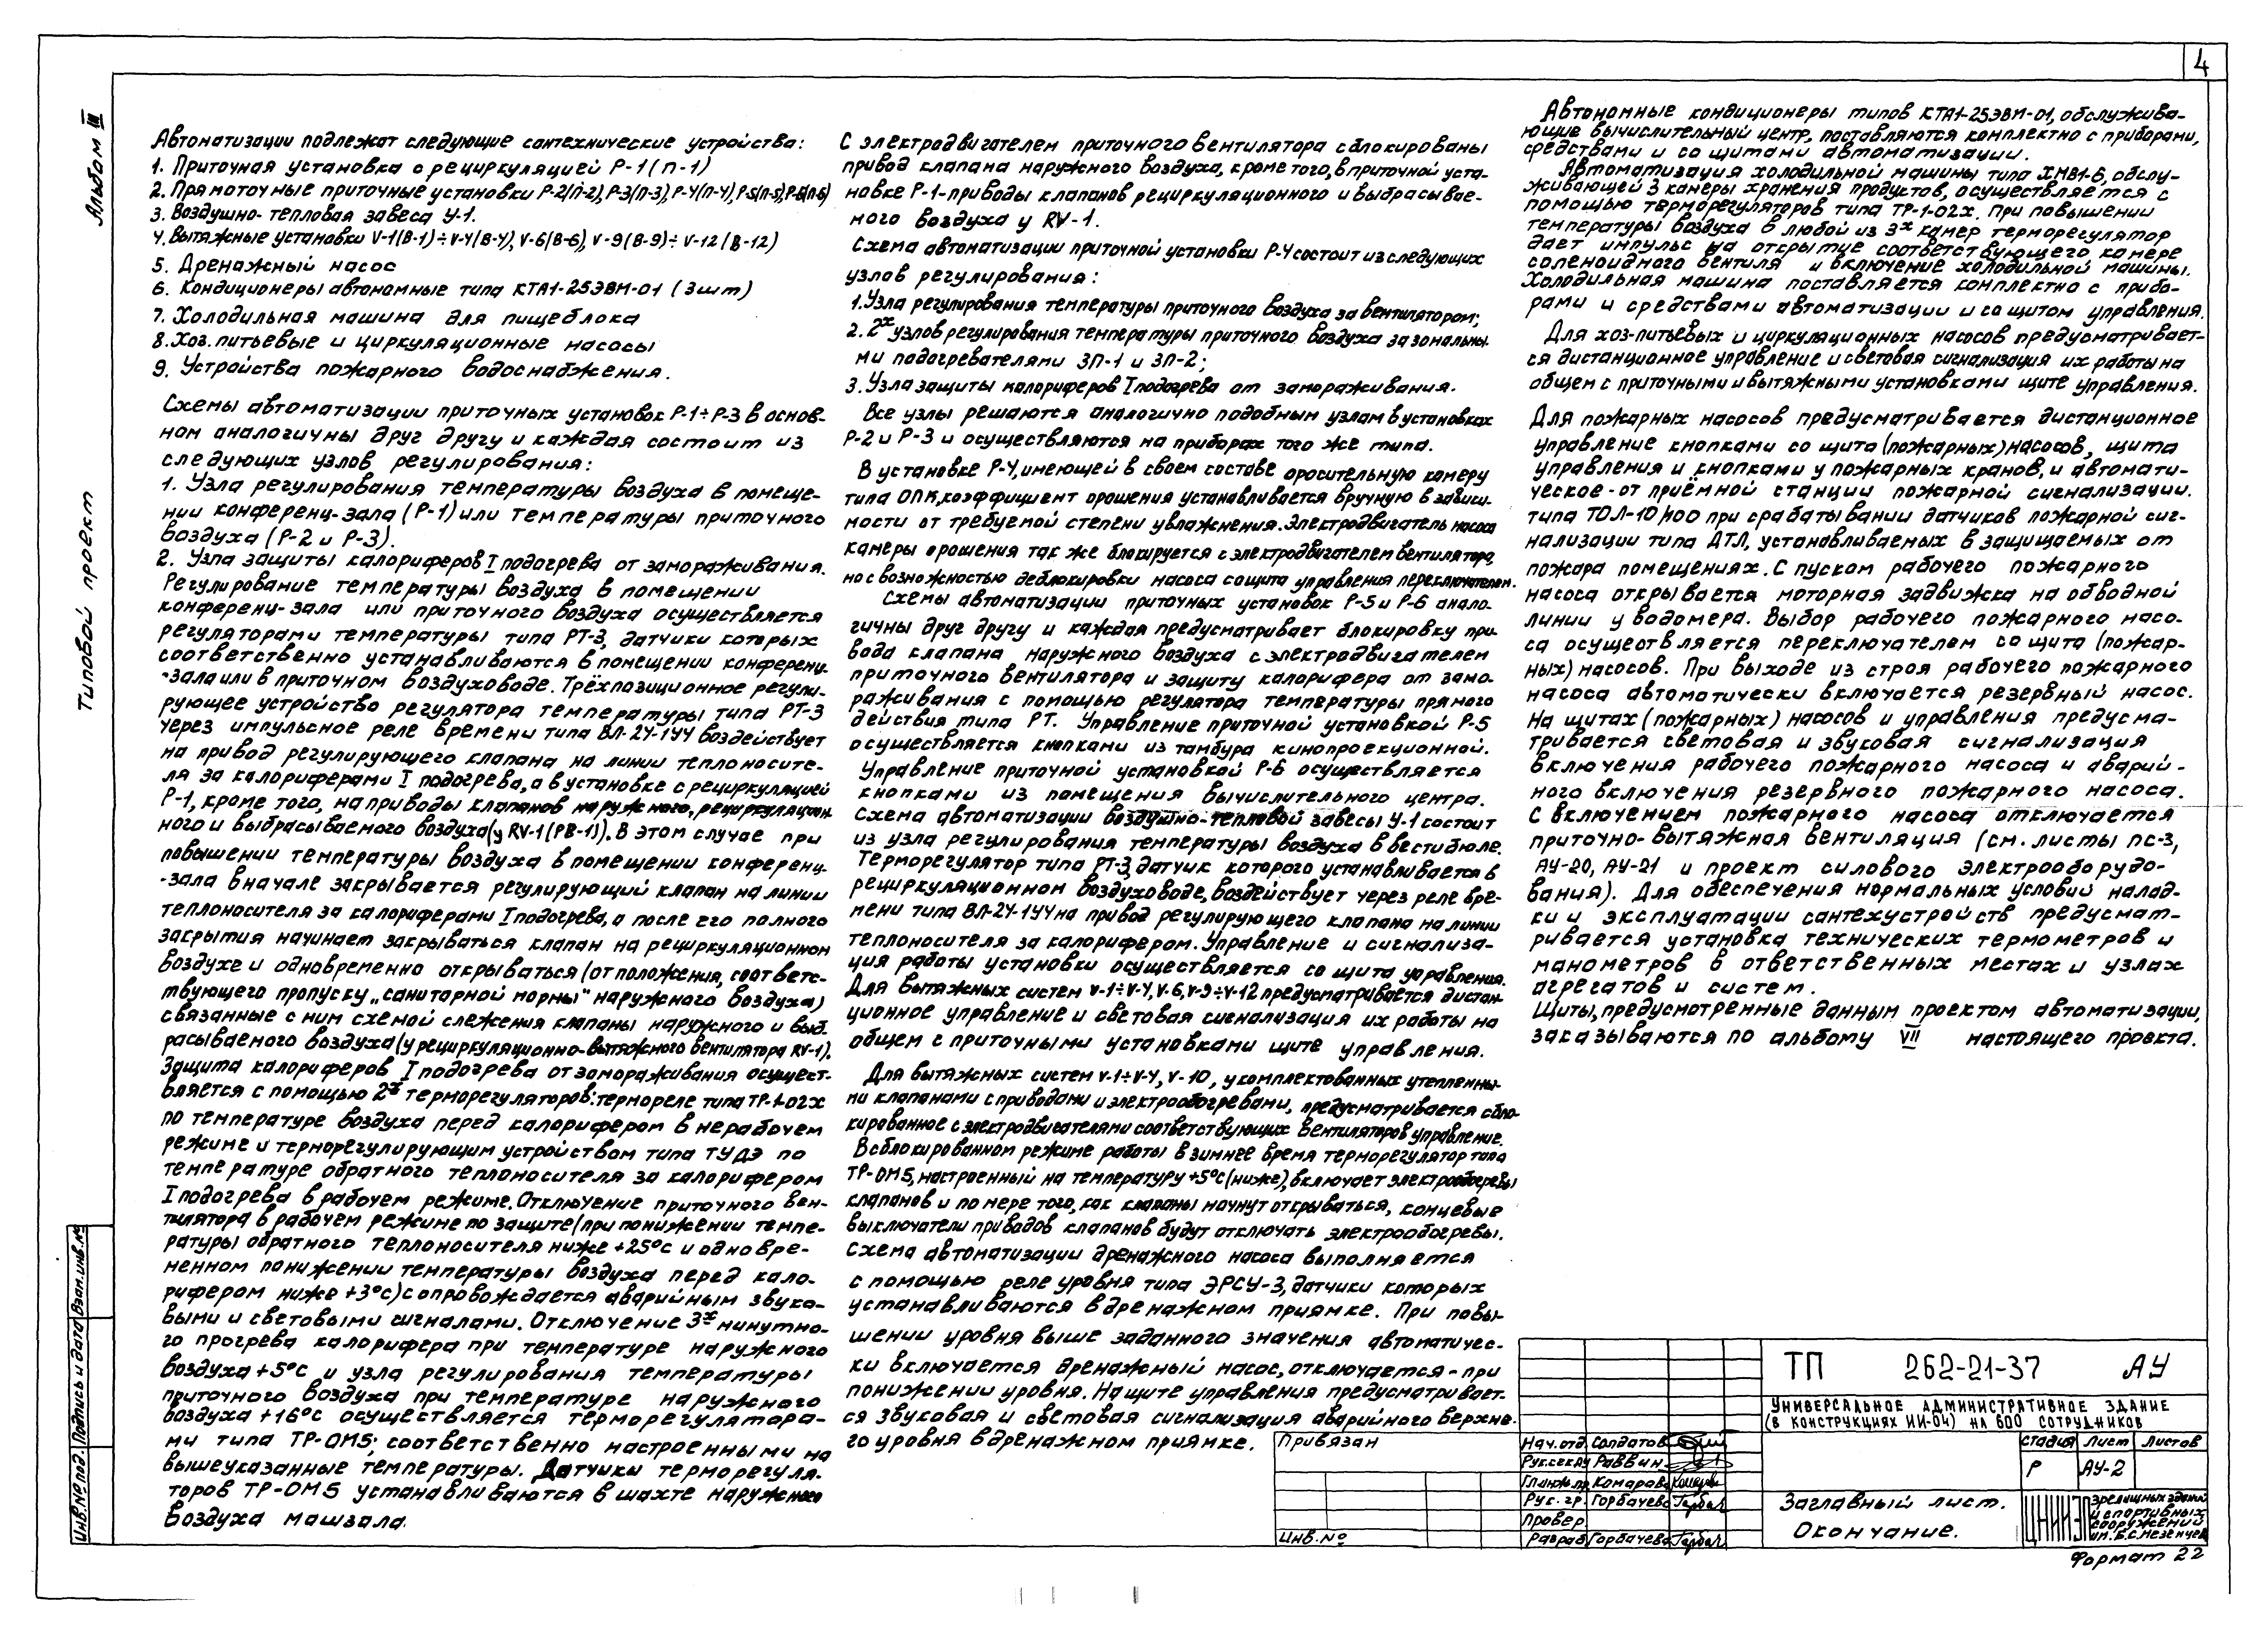 4
Альбом III
Типовой проект
Автоматизации подлежат следующие сантехнические устройства:
1. Приточная установка с рециркуляцией Р-1(П-1)
2. Прямоточные приточные установки Р-2(П-2), Р-3(П-3), Р-4(П-4), Р-5(П-5), Р-6(П-6)
3. Воздушно-тепловая завеса У-1.
4. Вытяжные установки V-1(В-1)÷V-4(В-4), V-6(В-6), V-9(В-9)÷V-12(В-12)
5. Дренажный насос
6. Кондиционеры автономные типа КТА1-25ЭВМ-01 (3шт)
7. Холодильная машина для пищеблока
8. Хоз.питьевые и циркуляционные насосы
9. Устройства пожарного водоснабжения.
Схемы автоматизации приточных установок Р-1÷Р-3 в основ-
ном аналогичны друг другу и каждая состоит из
следующих узлов регулирования:
1. Узла регулирования температуры воздуха в помеще-
нии конференц-зала (Р-1) или температуры приточного
воздуха (Р-2 и Р-3).
2. Узла защиты калориферов I подогрева от замораживания.
Регулирование температуры воздуха в помещении
конференц-зала или приточного воздуха осуществляется
регуляторами температуры типа РТ-3, датчики которых
соответственно устанавливаются в помещении конференц-
-зала или в приточном воздуховоде. Трёхпозиционное регули-
рующее устройство регулятора температуры типа РТ-3
через импульсное реле времени типа ВЛ-24-1У4 воздействует
на привод регулирующего клапана на линии теплоносите-
ля за калориферами I подогрева, а в установке с рециркуляцией
Р-1, кроме того, на приводы клапанов наружного, рециркуляцион-
ного и выбрасываемого воздуха (у RV-1(РВ-1)). В этом случае при
повышении температуры воздуха в помещении конференц-
-зала вначале закрывается регулирующий клапан на линии
теплоносителя за калориферами I подогрева, а после его полного
закрытия начинает закрываться клапан на рециркуляционном
воздухе и одновременно открываться (от положения, соответс-
твующего пропуску „санитарной нормы" наружного воздуха)
связанные с ним схемой слежения клапаны наружного и выб-
расываемого воздуха (у рециркуляционно-вытяжного вентилятора RV-1).
Защита калориферов I подогрева от замораживания осущест-
вляется с помощью 2х терморегуляторов: термореле типа ТР-1-02Х
по температуре воздуха перед калорифером в нерабочем
режиме и терморегулирующим устройством типа ТУДЭ по
температуре обратного теплоносителя за калорифером
I подогрева в рабочем режиме. Отключение приточного вен-
тилятора в рабочем режиме по защите (при понижении темпе-
ратуры обратного теплоносителя ниже +25°С и одновре-
менном понижении температуры воздуха перед кало-
рифером ниже +3°С) сопровождается аварийным звуко-
выми и световыми сигналами. Отключение 3х минутно-
го прогрева калорифера при температуре наружного
воздуха +5°С и узла регулирования температуры
приточного воздуха при температуре наружного
воздуха +16°С осуществляется терморегулятора-
ми типа ТР-ОМ5; соответственно настроенными на
вышеуказанные температуры. Датчики терморегуля-
торов ТР-ОМ5 устанавливаются в шахте наружного
воздуха машзала.
С электродвигателем приточного вентилятора сблокированы
привод клапана наружного воздуха, кроме того, в приточной уста-
новке Р-1-приводы клапанов рециркуляционного и выбрасывае-
мого воздуха у RV-1.
Схема автоматизации приточной установки Р-4 состоит из следующих
узлов регулирования:
1. Узла регулирования температуры приточного воздуха за вентилятором;
2. 2х узлов регулирования температуры приточного воздуха за зональны-
ми подогревателями ЗП-1 и ЗП-2;
3. Узла защиты калориферов I подогрева от замораживания.
Все узлы решаются аналогично подобным узлам в установках
Р-2 и Р-3 и осуществляются на приборах того же типа.
В установке Р-4, имеющей в своем составе оросительную камеру
типа ОПК, коэффициент орошения устанавливается вручную в зависи-
мости от требуемой степени увлажнения. Электродвигатель насоса
камеры орошения так же блокируется с электродвигателем вентилятора,
но с возможностью деблокировки насоса со щита управления переключателем.
Схемы автоматизации приточных установок Р-5 и Р-6 анало-
гичны друг другу и каждая предусматривает блокировку при-
вода клапана наружного воздуха с электродвигателем
приточного вентилятора и защиту калорифера от замо-
раживания с помощью регулятора температуры прямого
действия типа РТ. Управление приточной установкой Р-5
осуществляется кнопками из тамбура кинопроекционной.
Управление приточной установкой Р-6 осуществляется
кнопками из помещения вычислительного центра.
Схема автоматизации воздушно-тепловой завесы У-1 состоит
из узла регулирования температуры воздуха в вестибюле.
Терморегулятор типа РТ-3, датчик которого устанавливается в
рециркуляционном воздуховоде, воздействует через реле вре-
мени типа ВЛ-24-1У4 на привод регулирующего клапана на линии
теплоносителя за калорифером. Управление и сигнализа-
ция работы установки осуществляется со щита управления.
Для вытяжных систем V-1÷V-4, V-6, V-9÷V-12 предусматривается дистан-
ционное управление и световая сигнализация их работы на
общем с приточными установками щите управления.
Для вытяжных систем V-1÷V-4, V-10, укомплектованных утепленны-
ми клапанами с приводами и электрообогревами, предусматривается сбло-
кированное с электродвигателями соответствующих вентиляторов управление.
В сблокированном режиме работы в зимнее время терморегулятор типа
ТР-ОМ5, настроенный на температуру +5°С (ниже), включает электрообогревы
клапанов и по мере того, как клапаны начнут открываться, концевые
выключатели приводов клапанов будут отключать электрообогревы.
Схема автоматизации дренажного насоса выполняется
с помощью реле уровня типа ЭРСУ-3, датчики которых
устанавливаются в дренажном приямке. При повы-
шении уровня выше заданного значения автоматичес-
ки включается дренажный насос, отключается-при
понижении уровня. На щите управления предусматривает-
ся звуковая и световая сигнализация аварийного верхне-
го уровня в дренажном приямке.
Автономные кондиционеры типов КТА1-25ЭВМ-01, обслужива-
ющие вычислительный центр, поставляются комплектно с приборами,
средствами и со щитами автоматизации.
Автоматизация холодильной машины типа ХМВ1-6, обслу-
живающей 3 камеры хранения продуктов, осуществляется с
помощью терморегуляторов типа ТР-1-02Х. При повышении
температуры воздуха в любой из 3х камер терморегулятор
дает импульс на открытие соответствующего камере
соленоидного вентиля и включение холодильной машины.
Холодильная машина поставляется комплектно с прибо-
рами и средствами автоматизации и со щитом управления.
Для хоз-питьевых и циркуляционных насосов предусматривает-
ся дистанционное управление и световая сигнализация их работы на
общем с приточными и вытяжными установками щите управления.
Для пожарных насосов предусматривается дистанционное
управление кнопками со щита (пожарных) насосов, щита
управления и кнопками у пожарных кранов, и автомати-
ческое-от приёмной станции пожарной сигнализации.
типа ТОЛ-10/100 при срабатывании датчиков пожарной сиг-
нализации типа ДТЛ, устанавливаемых в защищаемых от
пожара помещениях. С пуском рабочего пожарного
насоса открывается моторная задвижка на обводной
линии у водомера. Выбор рабочего пожарного насо-
са осуществляется переключателем со щита (пожар-
ных) насосов. При выходе из строя рабочего пожарного
насоса автоматически включается резервный насос.
На щитах (пожарных) насосов и управления предусма-
тривается световая и звуковая сигнализация
включения рабочего пожарного насоса и аварий-
ного включения резервного пожарного насоса.
С включением пожарного насоса отключается
приточно-вытяжная вентиляция (см. листы ПС-3,
АУ-20, АУ-21 и проект силового электрооборудо-
вания). Для обеспечения нормальных условий налад-
ки и эксплуатации сантехустройств предусмат-
ривается установка технических термометров и
манометров в ответственных местах и узлах
агрегатов и систем.
Щиты, предусмотренные данным проектом автоматизации,
заказываются по альбому VII настоящего проекта.
Инв.№ под. Подпись и дата Взам.инв.№
Привязан
Инв.№
Нач.отд. Солдатов
Рук.сек.АУ Раввин
Гл.инж.пр. Комарова
Рук. гр. Горбачева
Провер.
Разраб. Горбачева
ТП 262-21-37 АУ
Универсальное административное здание
(в конструкциях ИИ-04) на 600 сотрудников
Стадия Лист Листов
Р АУ-2
Заглавный лист.
Окончание.
ЦНИИЭП зрелищных зданий
и спортивных
сооружений
им. Б.С. Мезенцева
Формат 22